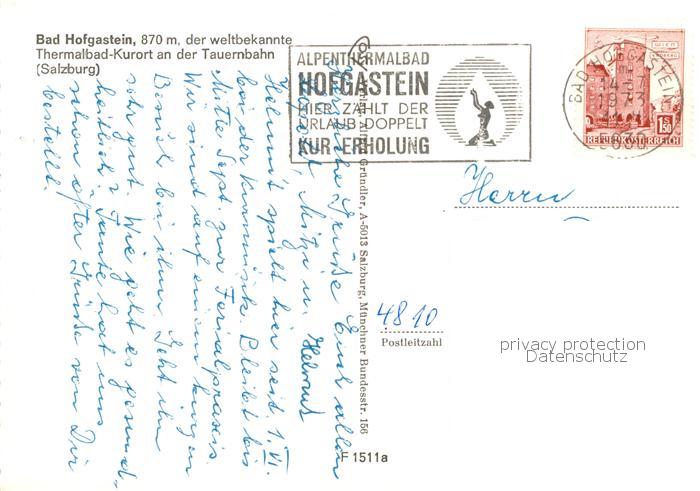 Bad Hofgastein, 870 m, der weltbekannte
Thermalbad-Kurort an der Tauernbahn
(Salzburg)
ALPENTHERMALBAD
HOFGASTEIN
HIER ZÄHLT DER
URLAUB DOPPELT
KUR-ERHOLUNG
BAD HOFGASTEIN
5630
WIEN
ERDBERG
1.50
REPUBLIK ÖSTERREICH
Herrn
4810
Postleitzahl
privacy protection
Datenschutz
Gründler, A-5013 Salzburg, Münchner Bundesstr. 156
F 1511a
Grüße Euch allen
Mitzi u. Helmut
Helmut spielt hier seit 1. VI.
bei der Kurmusik. Bleibt bis
Mitte Sept. zur Ferialpraxis.
Wir sind auf einen kurzen
Besuch bei ihm. Geht ihm
sehr gut. Wie geht es gesund-
heitlich? Tante hat uns
schon öfter Grüße von Dir
bestellt.